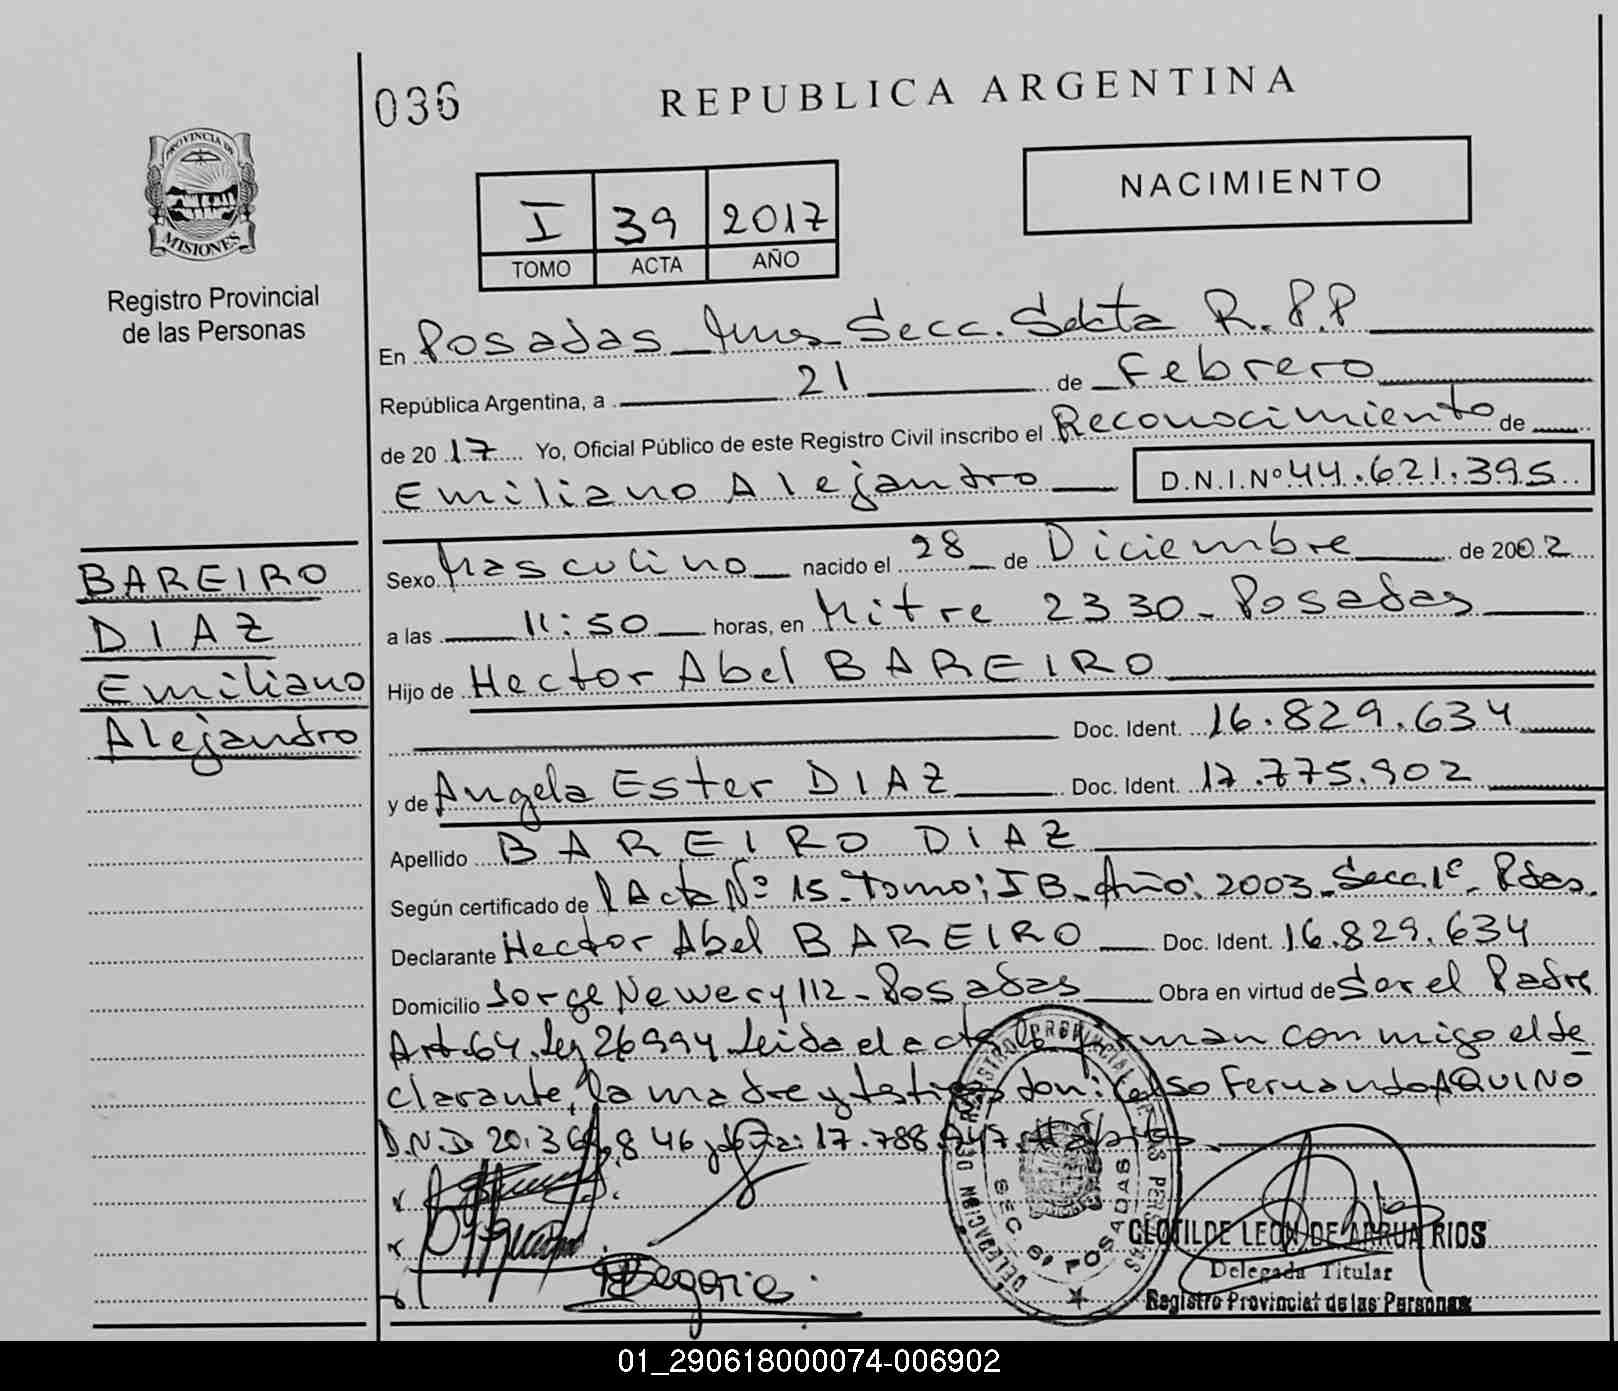 036
REPUBLICA ARGENTINA
PROVINCIA DE
MISIONES
Registro Provincial
de las Personas
NACIMIENTO
I 39 2017
TOMO ACTA AÑO
En Posadas Mnes Secc. Sexta R.P.P
República Argentina, a 21 de Febrero
de 2017 Yo, Oficial Público de este Registro Civil inscribo el Reconocimiento de
Emiliano Alejandro D.N.I.Nº 44.621.395
BAREIRO
DIAZ
Emiliano
Alejandro
Sexo Masculino nacido el 28 de Diciembre de 2002
a las 11:50 horas, en Mitre 2330 - Posadas
Hijo de Hector Abel BAREIRO
Doc. Ident. 16.829.634
y de Angela Ester DIAZ Doc. Ident. 17.775.902
Apellido BAREIRO DIAZ
Según certificado de Acta Nº 15 - Tomo: I B - Año: 2003 - Secc. 1º - Pdas.
Declarante Hector Abel BAREIRO Doc. Ident. 16.829.634
Domicilio Jorge Newery 112 - Posadas Obra en virtud de Ser el Padre
Art. 64. Ley 26994 Leida el acta la firman con migo el de
clarante, la madre y testigos don: Celso Fernando AQUINO
D.N.I 20.3 8 46 y 17.788. 47.
DELEGACION DEL REGISTRO PROVINCIAL DE LAS PERSONAS
SEC. 6ª POSADAS
CLOTILDE LEON DE ARRUA RIOS
Delegada Titular
Registro Provincial de las Personas
01_290618000074-006902